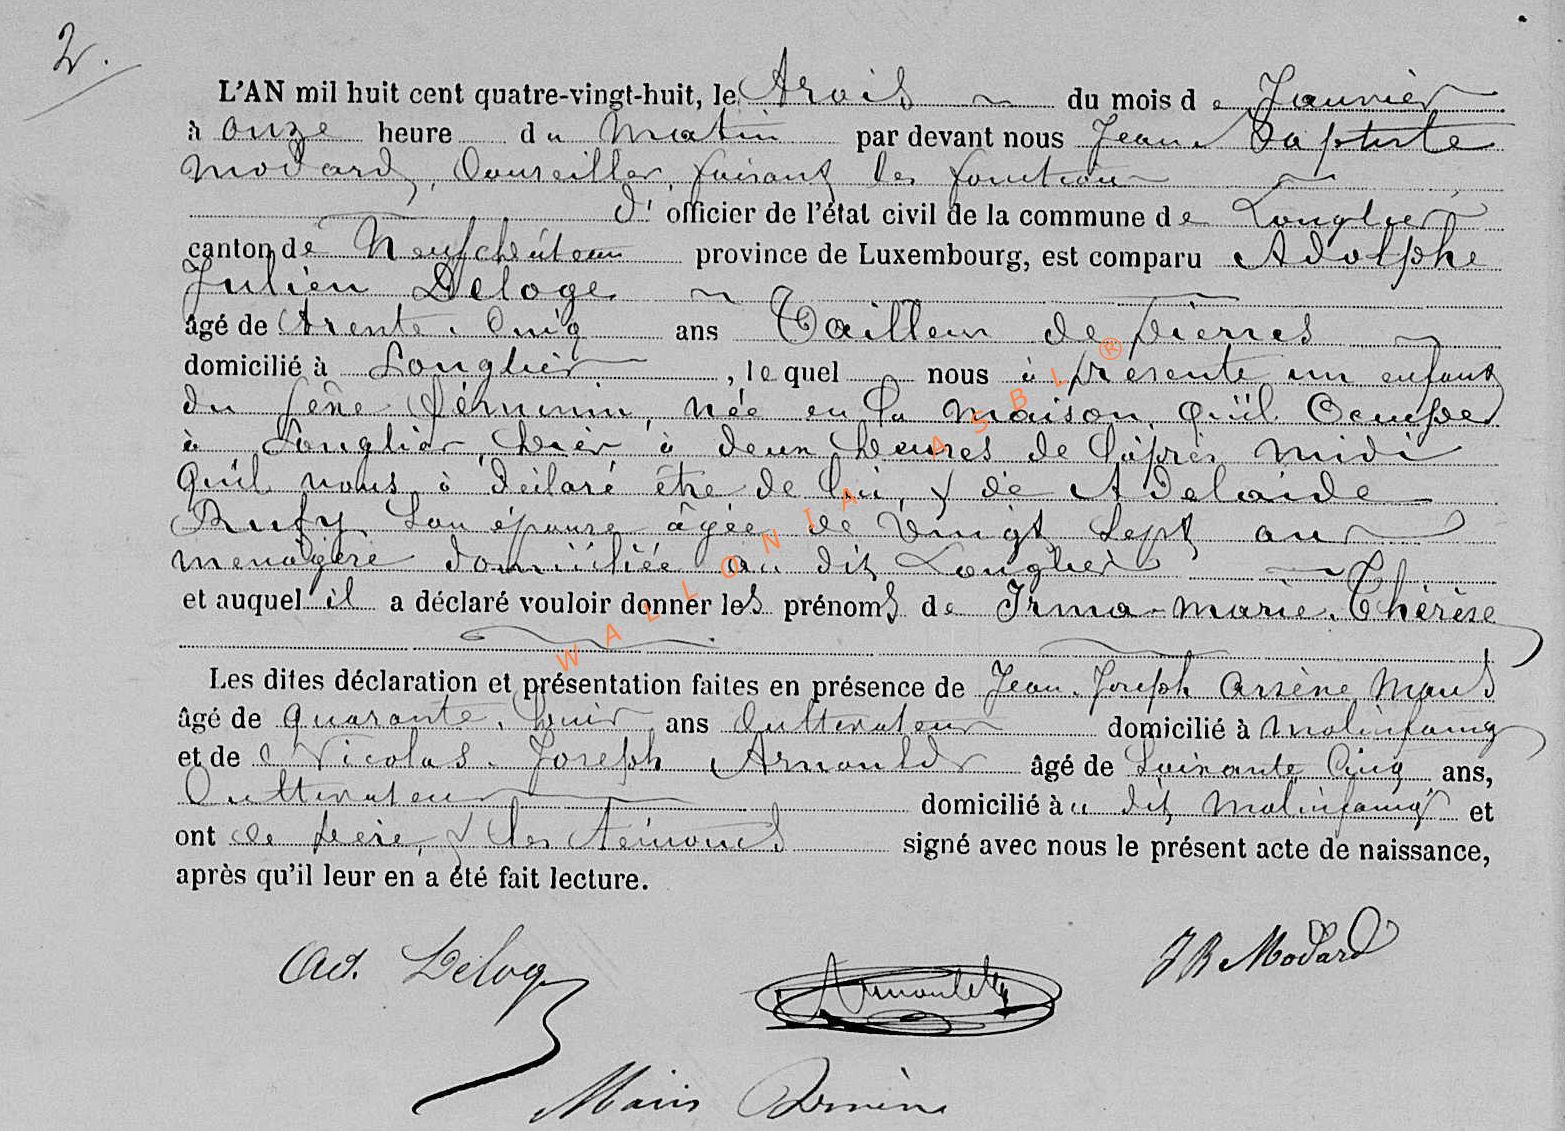 2.
L'AN mil huit cent quatre-vingt-huit, le trois du mois de Janvier
à onze heure du matin par devant nous Jean Baptiste
Modard, Conseiller, faisant les fonction
d' officier de l'état civil de la commune de Longlier
canton de Neufchâteau province de Luxembourg, est comparu Adolphe
Julien Deloge
âgé de trente-cinq ans Tailleur de Pierres
domicilié à Longlier, lequel nous à présenté un enfant
du sexe féminin, née en la maison qu'il occupe
à Longlier, hièr, à deux heures de l'après midi
qu'il nous à déclaré être de lui, & de Adelaïde
Rufy son épouse âgée de vingt sept ans
menagère domiciliée au dit Longlier
et auquel il a déclaré vouloir donner les prénoms de Irma-Marie-Thérèse
Les dites déclaration et présentation faites en présence de Jean-Joseph Arsène Maus
âgé de quarante-huit ans Cultivateur domicilié à Molinfaing
et de Nicolas-Joseph Arnould âgé de Soixante Cinq ans,
Cultivateur domicilié àu dit Molinfaing et
ont le père, & les témoins signé avec nous le présent acte de naissance,
après qu'il leur en a été fait lecture.
Ad. Deloge
JB Modard
Arnould
Maus Arsène
WALLONIA ASBL ®